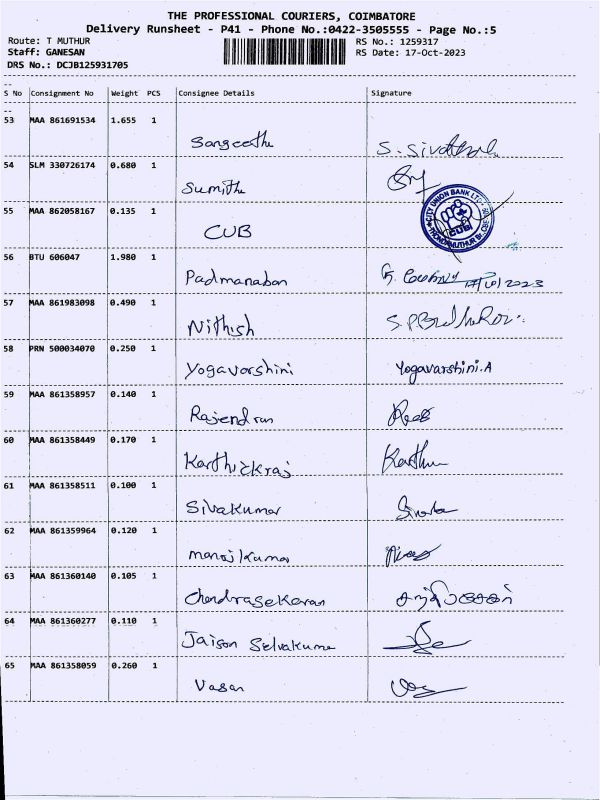 THE PROFESSIONAL COURIERS, COIMBATORE
Delivery Runsheet - P41 - Phone No.:0422-3505555 - Page No.:5
Route: T MUTHUR
RS No.: 1259317
Staff: GANESAN
RS Date: 17-Oct-2023
DRS No.: DCJB125931705
S No Consignment No Weight PCS Consignee Details Signature
53 MAA 861691534 1.655 1
Sangeetha
54 SLM 330726174 0.680 1
Sumithe
CITY UNION BANK LTD
CUB
THONDAMUTHUR Br, CBE
55 MAA 862058167 0.135 1
CUB
56 BTU 606047 1.980 1
Padmanaban 17/10/2023
57 MAA 861983098 0.490 1
Nithish
58 PRN 500034070 0.250 1
Yogavarshini Yogavarshini.A
59 MAA 861358957 0.140 1
Rajendran
60 MAA 861358449 0.170 1
Karthickraj
61 MAA 861358511 0.100 1
Sivakumar
62 MAA 861359964 0.120 1
manojkumar
63 MAA 861360140 0.105 1
Chandrasekaran
64 MAA 861360277 0.110 1
Jaison Selvakuma
65 MAA 861358059 0.260 1
Vasan